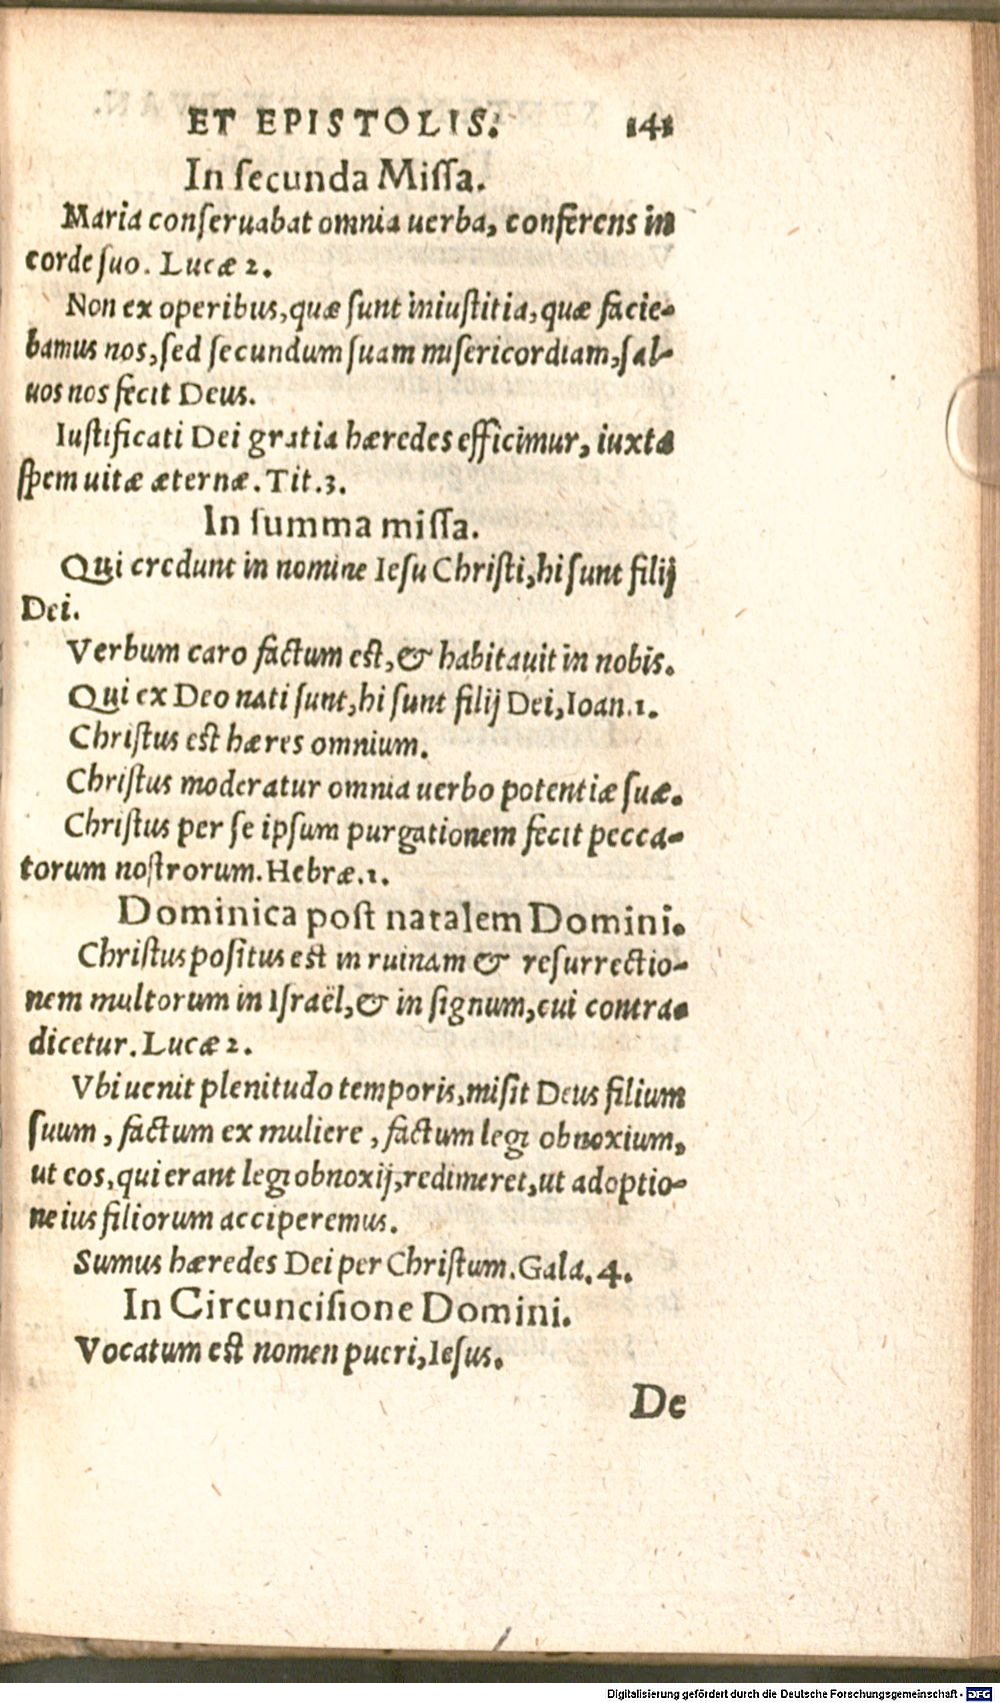 ET EPISTOLIS. 141
In ſecunda Miſſa.
Maria conſeruabat omnia uerba, conferens in
corde ſuo. Lucæ 2.
Non ex operibus, quæ ſunt iniuſtitia, quæ facie-
bamus nos, ſed ſecundum ſuam miſericordiam, ſal-
uos nos fecit Deus.
Iuſtificati Dei gratia hæredes efficimur, iuxta
ſpem uitæ æternæ. Tit. 3.
In ſumma miſſa.
Qui credunt in nomine Ieſu Chriſti, hi ſunt filij
Dei.
Verbum caro factum eſt, & habitauit in nobis.
Qui ex Deo nati ſunt, hi ſunt filij Dei, Ioan. 1.
Chriſtus eſt hæres omnium.
Chriſtus moderatur omnia uerbo potentiæ ſuæ.
Chriſtus per ſe ipſum purgationem fecit pecca-
torum noſtrorum. Hebræ. 1.
Dominica poſt natalem Domini.
Chriſtus poſitus eſt in ruinam & reſurrectio-
nem multorum in Iſraël, & in ſignum, cui contra-
dicetur. Lucæ 2.
Vbi uenit plenitudo temporis, miſit Deus filium
ſuum, factum ex muliere, factum legi obnoxium,
ut eos, qui erant legi obnoxij, redimeret, ut adoptio-
ne ius filiorum acciperemus.
Sumus hæredes Dei per Chriſtum. Gala. 4.
In Circunciſione Domini.
Vocatum eſt nomen pueri, Ieſus.
De
Digitalisierung gefördert durch die Deutsche Forschungsgemeinschaft - DFG